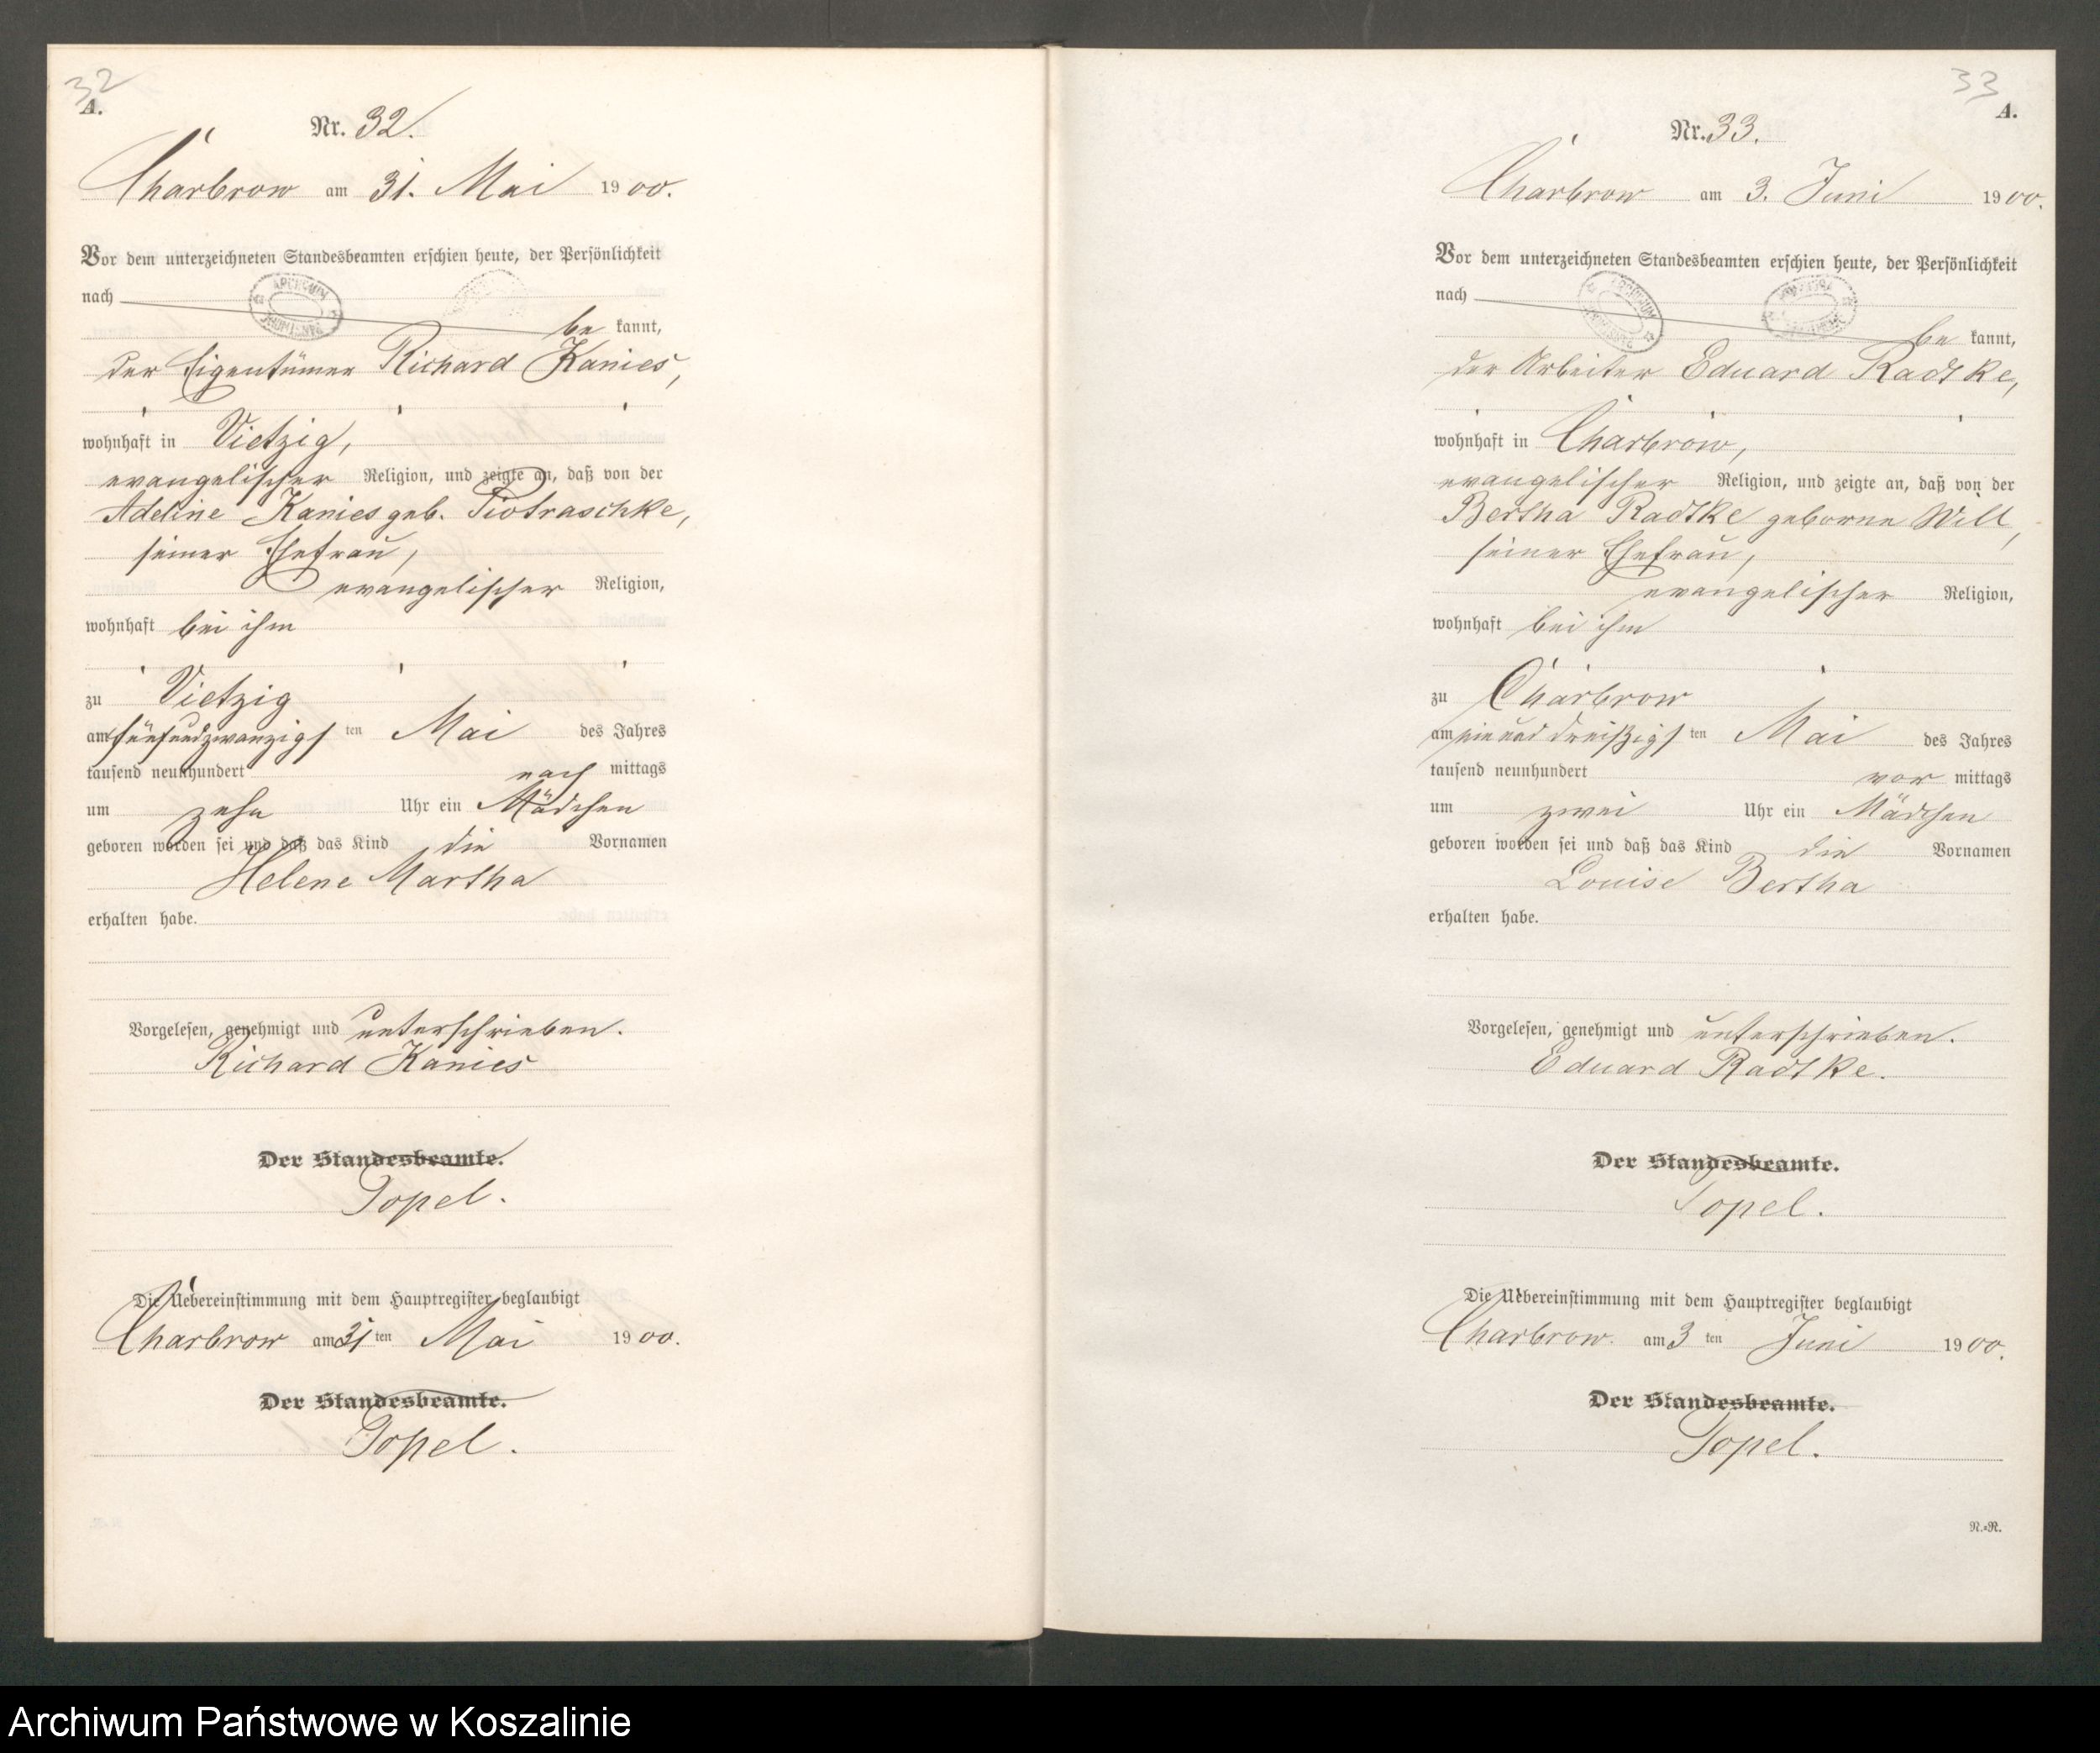 32
A.
Nr. 32.
Charbrow am 31. Mai 1900.
Vor dem unterzeichneten Standesbeamten erschien heute, der Persönlichkeit
nach
be kannt,
der Eigentümer Richard Kanies,
wohnhaft in Vietzig,
evangelischer Religion, und zeigte an, daß von der
Adeline Kanies geb. Piotraschke,
seiner Ehefrau,
evangelischer Religion,
wohnhaft bei ihm
zu Vietzig
am fünfundzwanzigsten Mai des Jahres
tausend neunhundert nach mittags
um zehn Uhr ein Mädchen
geboren worden sei und daß das Kind die Vornamen
Helene Martha
erhalten habe.
Vorgelesen, genehmigt und unterschrieben.
Richard Kanies
Der Standesbeamte.
Popel.
Die Uebereinstimmung mit dem Hauptregister beglaubigt
Charbrow am 31ten Mai 1900.
Der Standesbeamte.
Popel.
33
A.
Nr. 33.
Charbrow am 3. Juni 1900.
Vor dem unterzeichneten Standesbeamten erschien heute, der Persönlichkeit
nach
be kannt,
der Arbeiter Eduard Radtke,
wohnhaft in Charbrow,
evangelischer Religion, und zeigte an, daß von der
Bertha Radtke geborne Will,
seiner Ehefrau,
evangelischer Religion,
wohnhaft bei ihm
zu Charbrow
am einund dreißigsten Mai des Jahres
tausend neunhundert vor mittags
um zwei Uhr ein Mädchen
geboren worden sei und daß das Kind die Vornamen
Louise Bertha
erhalten habe.
Vorgelesen, genehmigt und unterschrieben.
Eduard Radtke.
Der Standesbeamte.
Popel.
Die Uebereinstimmung mit dem Hauptregister beglaubigt
Charbrow. am 3ten Juni 1900.
Der Standesbeamte.
Popel.
N.=R.
Archiwum Państwowe w Koszalinie